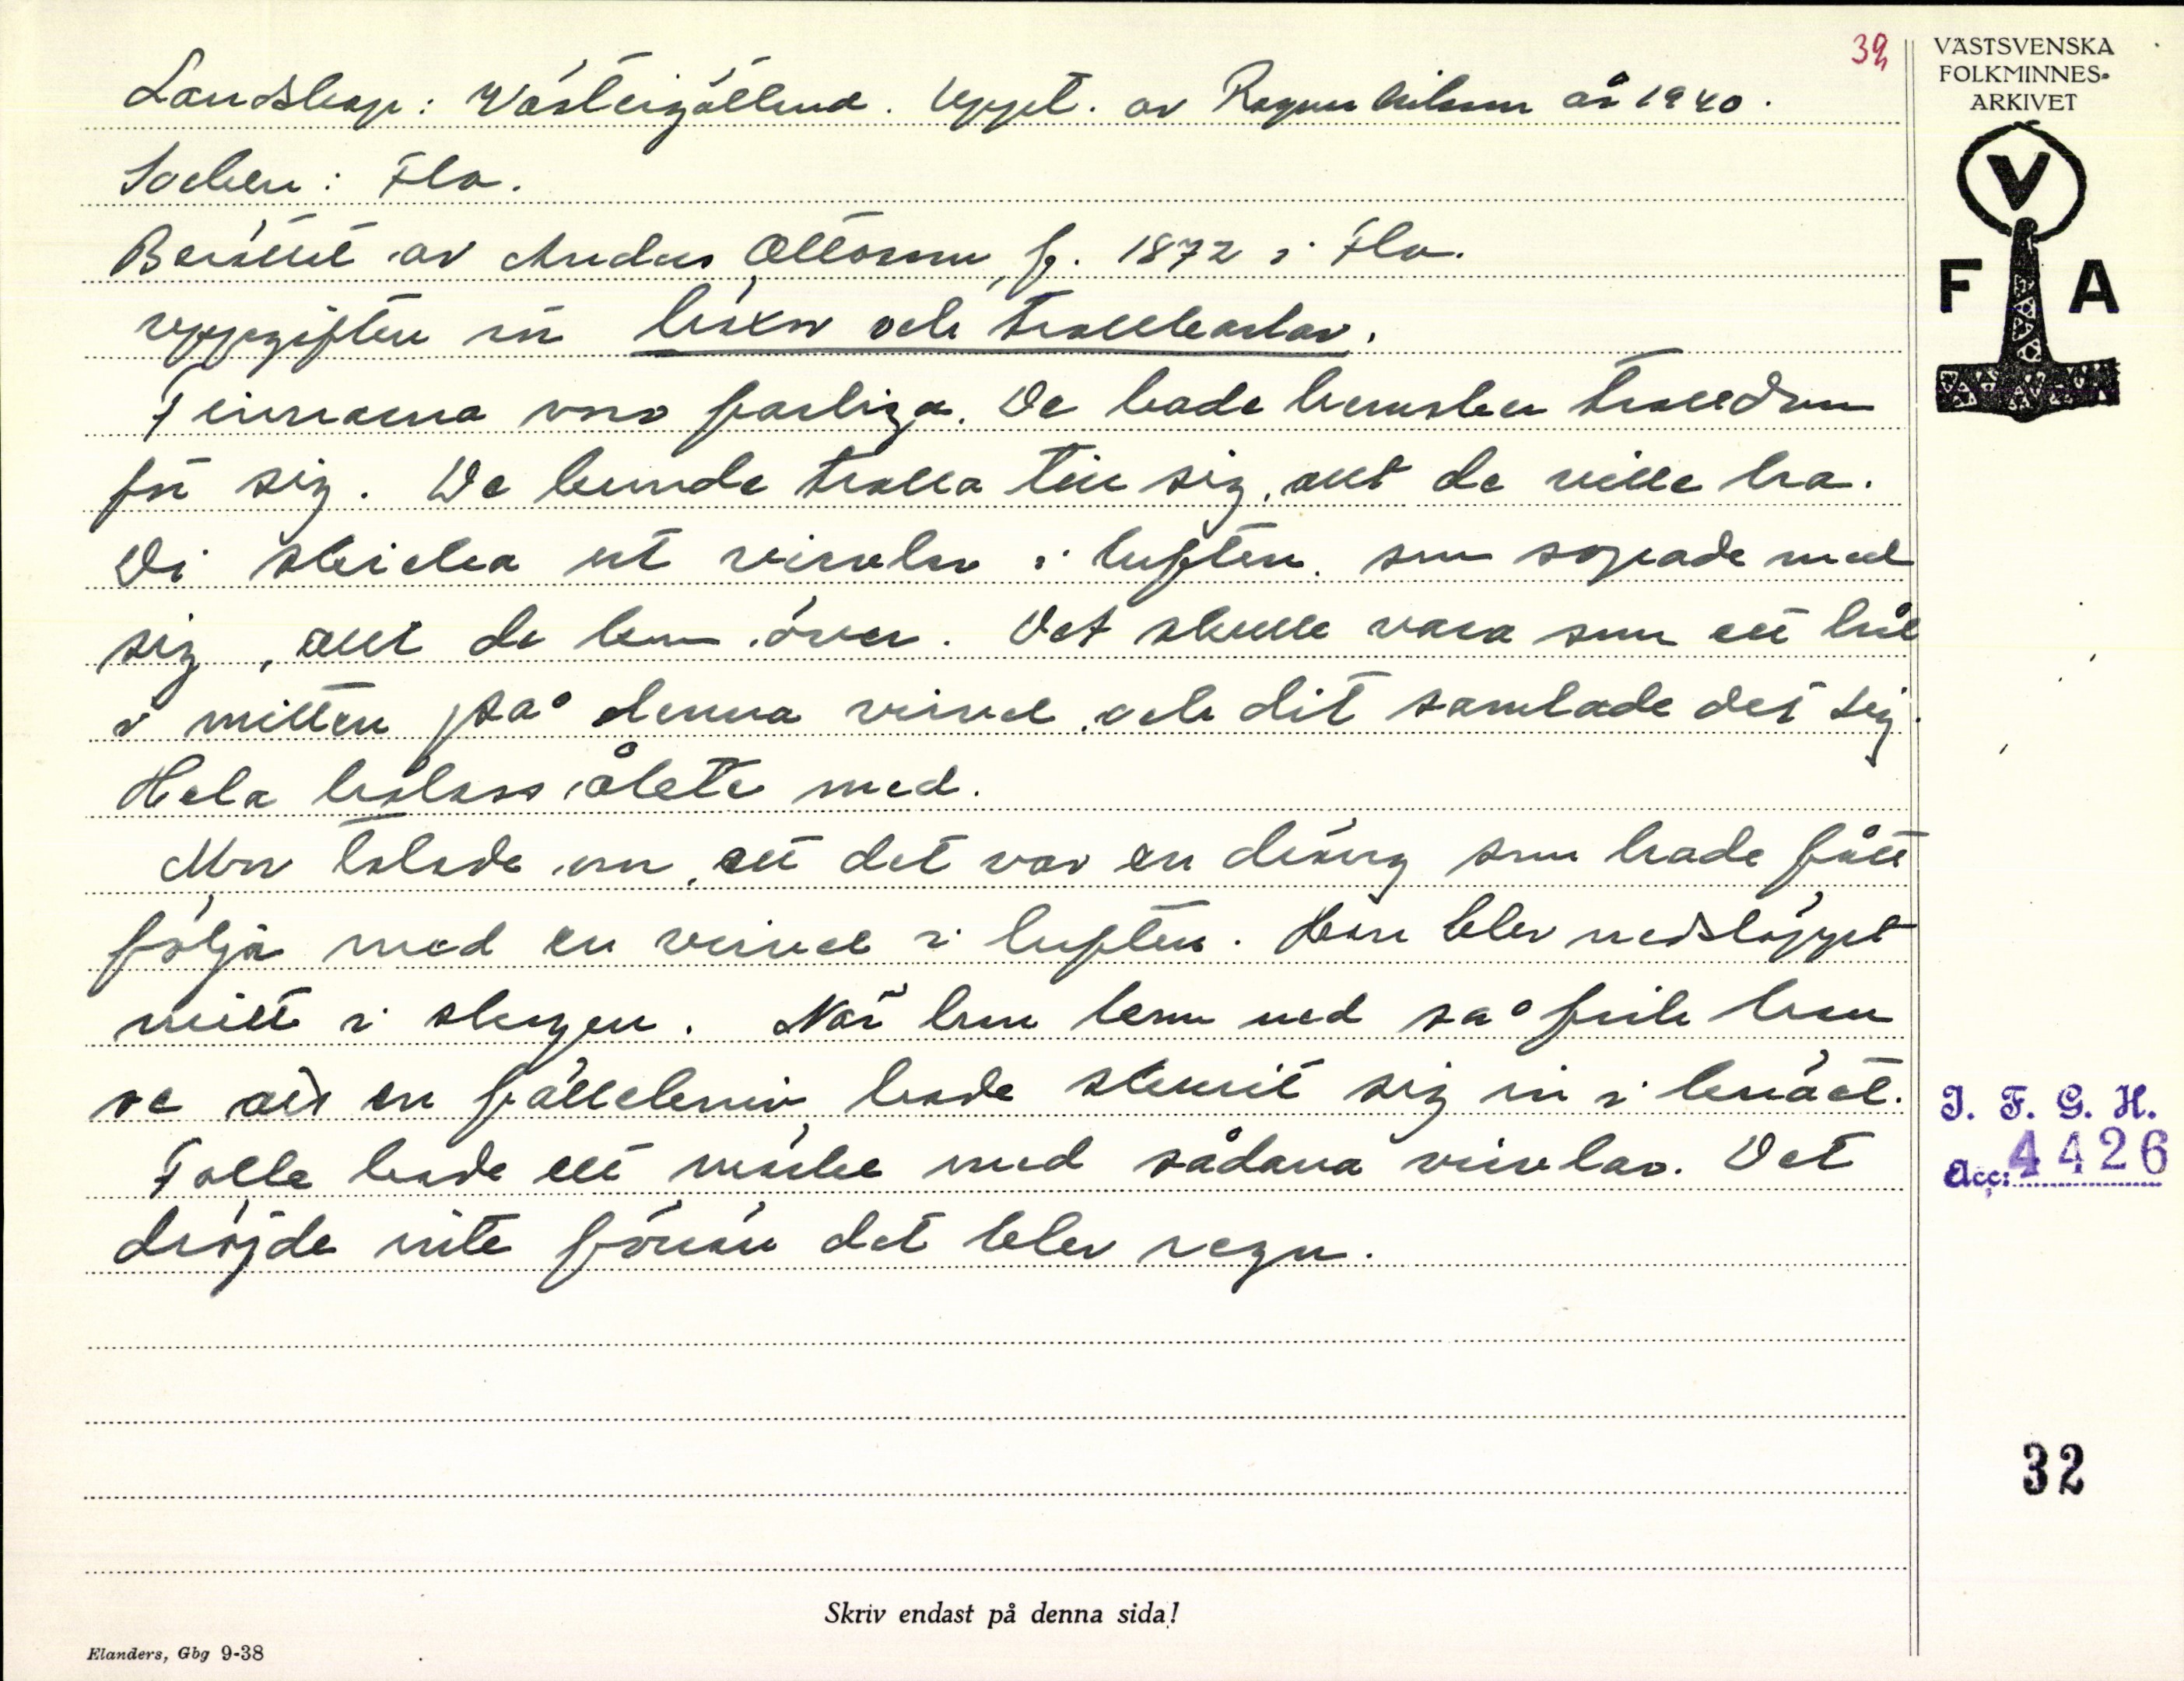 32
Landskap: Västergötland. Uppt. av Ragnar Nilsson år 1940.
Socken: Flo.
Berättat av Anders Ottosson, f. 1872 i Flo.
uppgiften rör häxor och trollkarlar.
Finnarna voro farliga. De hade hemsken trolldom
för sig. De kunde trolla till sig, allt de ville ha.
Di skicka ut virvlar i luften. som sopade med
sig, allt de kom över. Det skulle vara som ett hål
i mitten på denna virvel, och dit samlade det sig.
Hela hölass åkte med.
Mor talade om, att det var en dräng som hade fått
följa med en virvel i luften. Han blev nedsläppt
mitt i skogen. När han kom ned så fick han
se att en fällekniv hade skurit sig in i knäet.
Folk hade ett märke med sådana virvlar. Det
dröjde inte förrän det blev regn.
VÄSTSVENSKA
FOLKMINNES-
ARKIVET
V
F A
I. F. G. H.
Acc: 4426
32
Skriv endast på denna sida!
Elanders, Gbg 9-38